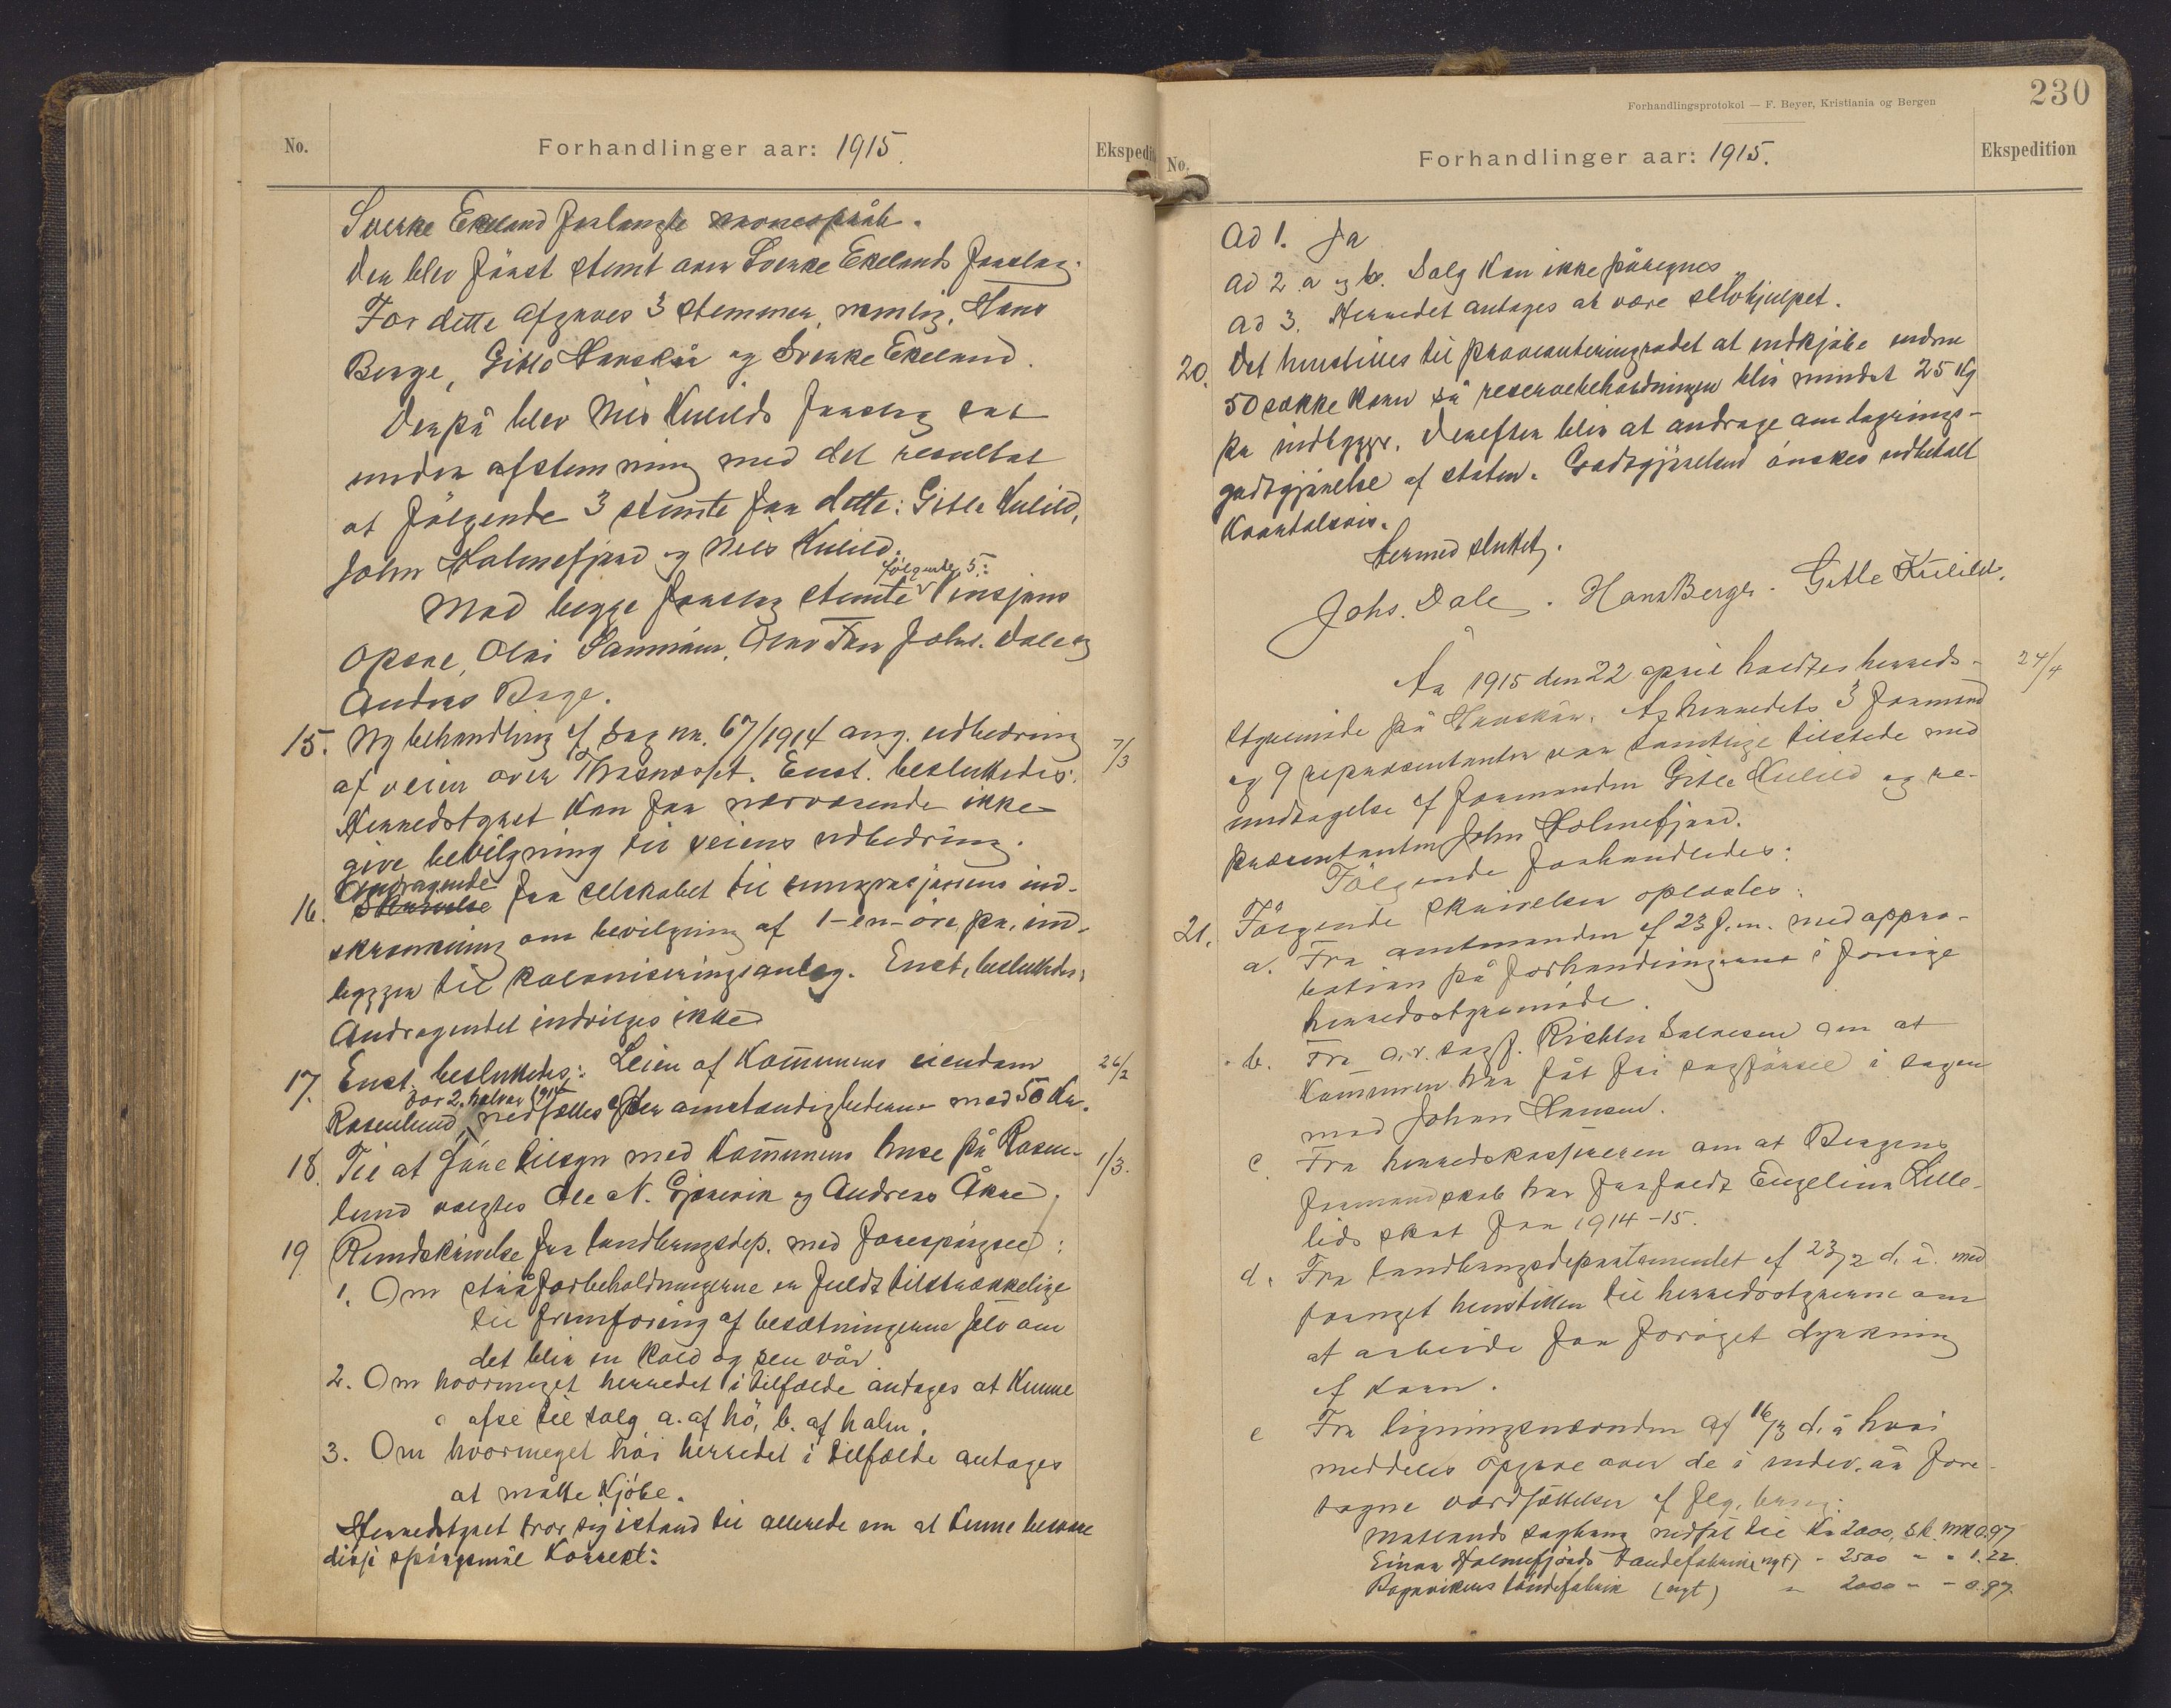 No.
Forhandlinger aar: 1915.
Ekspedi
Sverke Ekeland forlangte navneopråb.
Der blev först stemt over Sverke Ekelands forslag.
For dette afgaves 3 stemmer, nemlig, Hans
Berge, Gitle Havskår og Sverke Ekeland.
Derpå blev Nils Kulilds forslag sat
under afstemning med det resultat
at fölgende 3 stemte for dette: Gitle Kulild,
John Holmefjord og Nils Kulild.
Mod begge forslag stemte fölgende 5: Vinsjans
Opsae, Olai Olav John. Dale og
Andreas Berge.
15. Ny behandling af sag nr. 67/1914 ang. udbedring
7/3
af veien over Enst. besluttedes:
Herredstyret kan for nærværende ikke
give bevilgning til veiens udbedring.
16. Skrivelse Andragende fra selskabet til emigrasjonens ind-
skrænkning om bevilgning af 1-en-öre pr. ind-
bygger til koloniseringsanlæg. Enst. besluttedes:
Andragendet indvilges ikke
17. Enst. besluttedes: Leien af kommunens eiendom
26/2
Rosenlund for 2. halvår 1914 nedsættes efter omstændighederne med 50 Kr.
18. Til at före tilsyn med kommunens huse på Rosen-
1/3.
lund valgtes Ole N. Gjærvik og Andreas Åkre.
19 Rundskrivelse fra landbrugsdep. med forespörgsel:
1. Om stråforbeholdningerne er fuldt tilstrækkelige
til fremforing af besætningerne selv om
det blir en kold og sen vår.
2. Om hvormeget herredet i tilfælde antages at kunne
afse til salg a. af hö, b. af halm.
3. Om hvormeget höi herredet i tilfælde antages
at måtte kjöbe.
Herredstyret tror sig istand til allerede nu at kunne besvare
disse spörgsmål korrekt:
230
Forhandlingsprotokol — F. Beyer, Kristiania og Bergen
No.
Forhandlinger aar: 1915.
Ekspedition
Ad 1. Ja
Ad 2 a og b. Salg kan ikke påregnes
Ad 3. Herredet antages at være selvhjulpet.
20. Det henstilles til provianteringsrådet at indkjöbe endnu
50 sække korn så reservebeholdningen blir mindst 25 kg
pr indbygger. Derefter blir at andrage om lagrings-
godtgjörelse af staten. Godtgjörelsen önskes udbetalt
kvartalsvis.
Hermed sluttet.
Johs. Dale. Hans Berge. Gitle Kulild.
År 1915 den 22 april holdtes herreds-
24/4
styremöde på Havskår. Af herredets 3 formænd
og 9 repræsentanter var samtlige tilstede med
undtagelse af formanden Gitle Kulild og re-
præsentanten John Holmefjord.
Fölgende forhandledes:
21. Fölgende skrivelser oplæstes:
a. Fra amtmanden af 23 f. m. med appro-
bation på forhandlingerne i forrige
herredsstyremöde.
b. Fra o.r. sagf. Richter Salvesen om at
kommunen har fåt fri sagförsel i sagen
mod Johan Hansen.
c Fra herredskassereren om at Bergens
formandskab har frafaldt Engelina Lille-
lids skat for 1914-15.
d. Fra landbrugsdepartementet af 23/2 d. å. med
trænget henstillen til herredsstyrerne om
at arbeide for foröget dyrkning
af korn.
e Fra ligningsnævnden af 16/3 d. å hvori
meddeles opgave over de i indev. år fore-
tagne værdsættelser af flg. brug:
Matlands sagbrug nedsat til Kr 2000, Sk. mk 0.97
Einar Holmefjords töndefabrik (nyt) - 2500 " " 1.22.
töndefabrik (nyt) " 2000 " - 0.97.